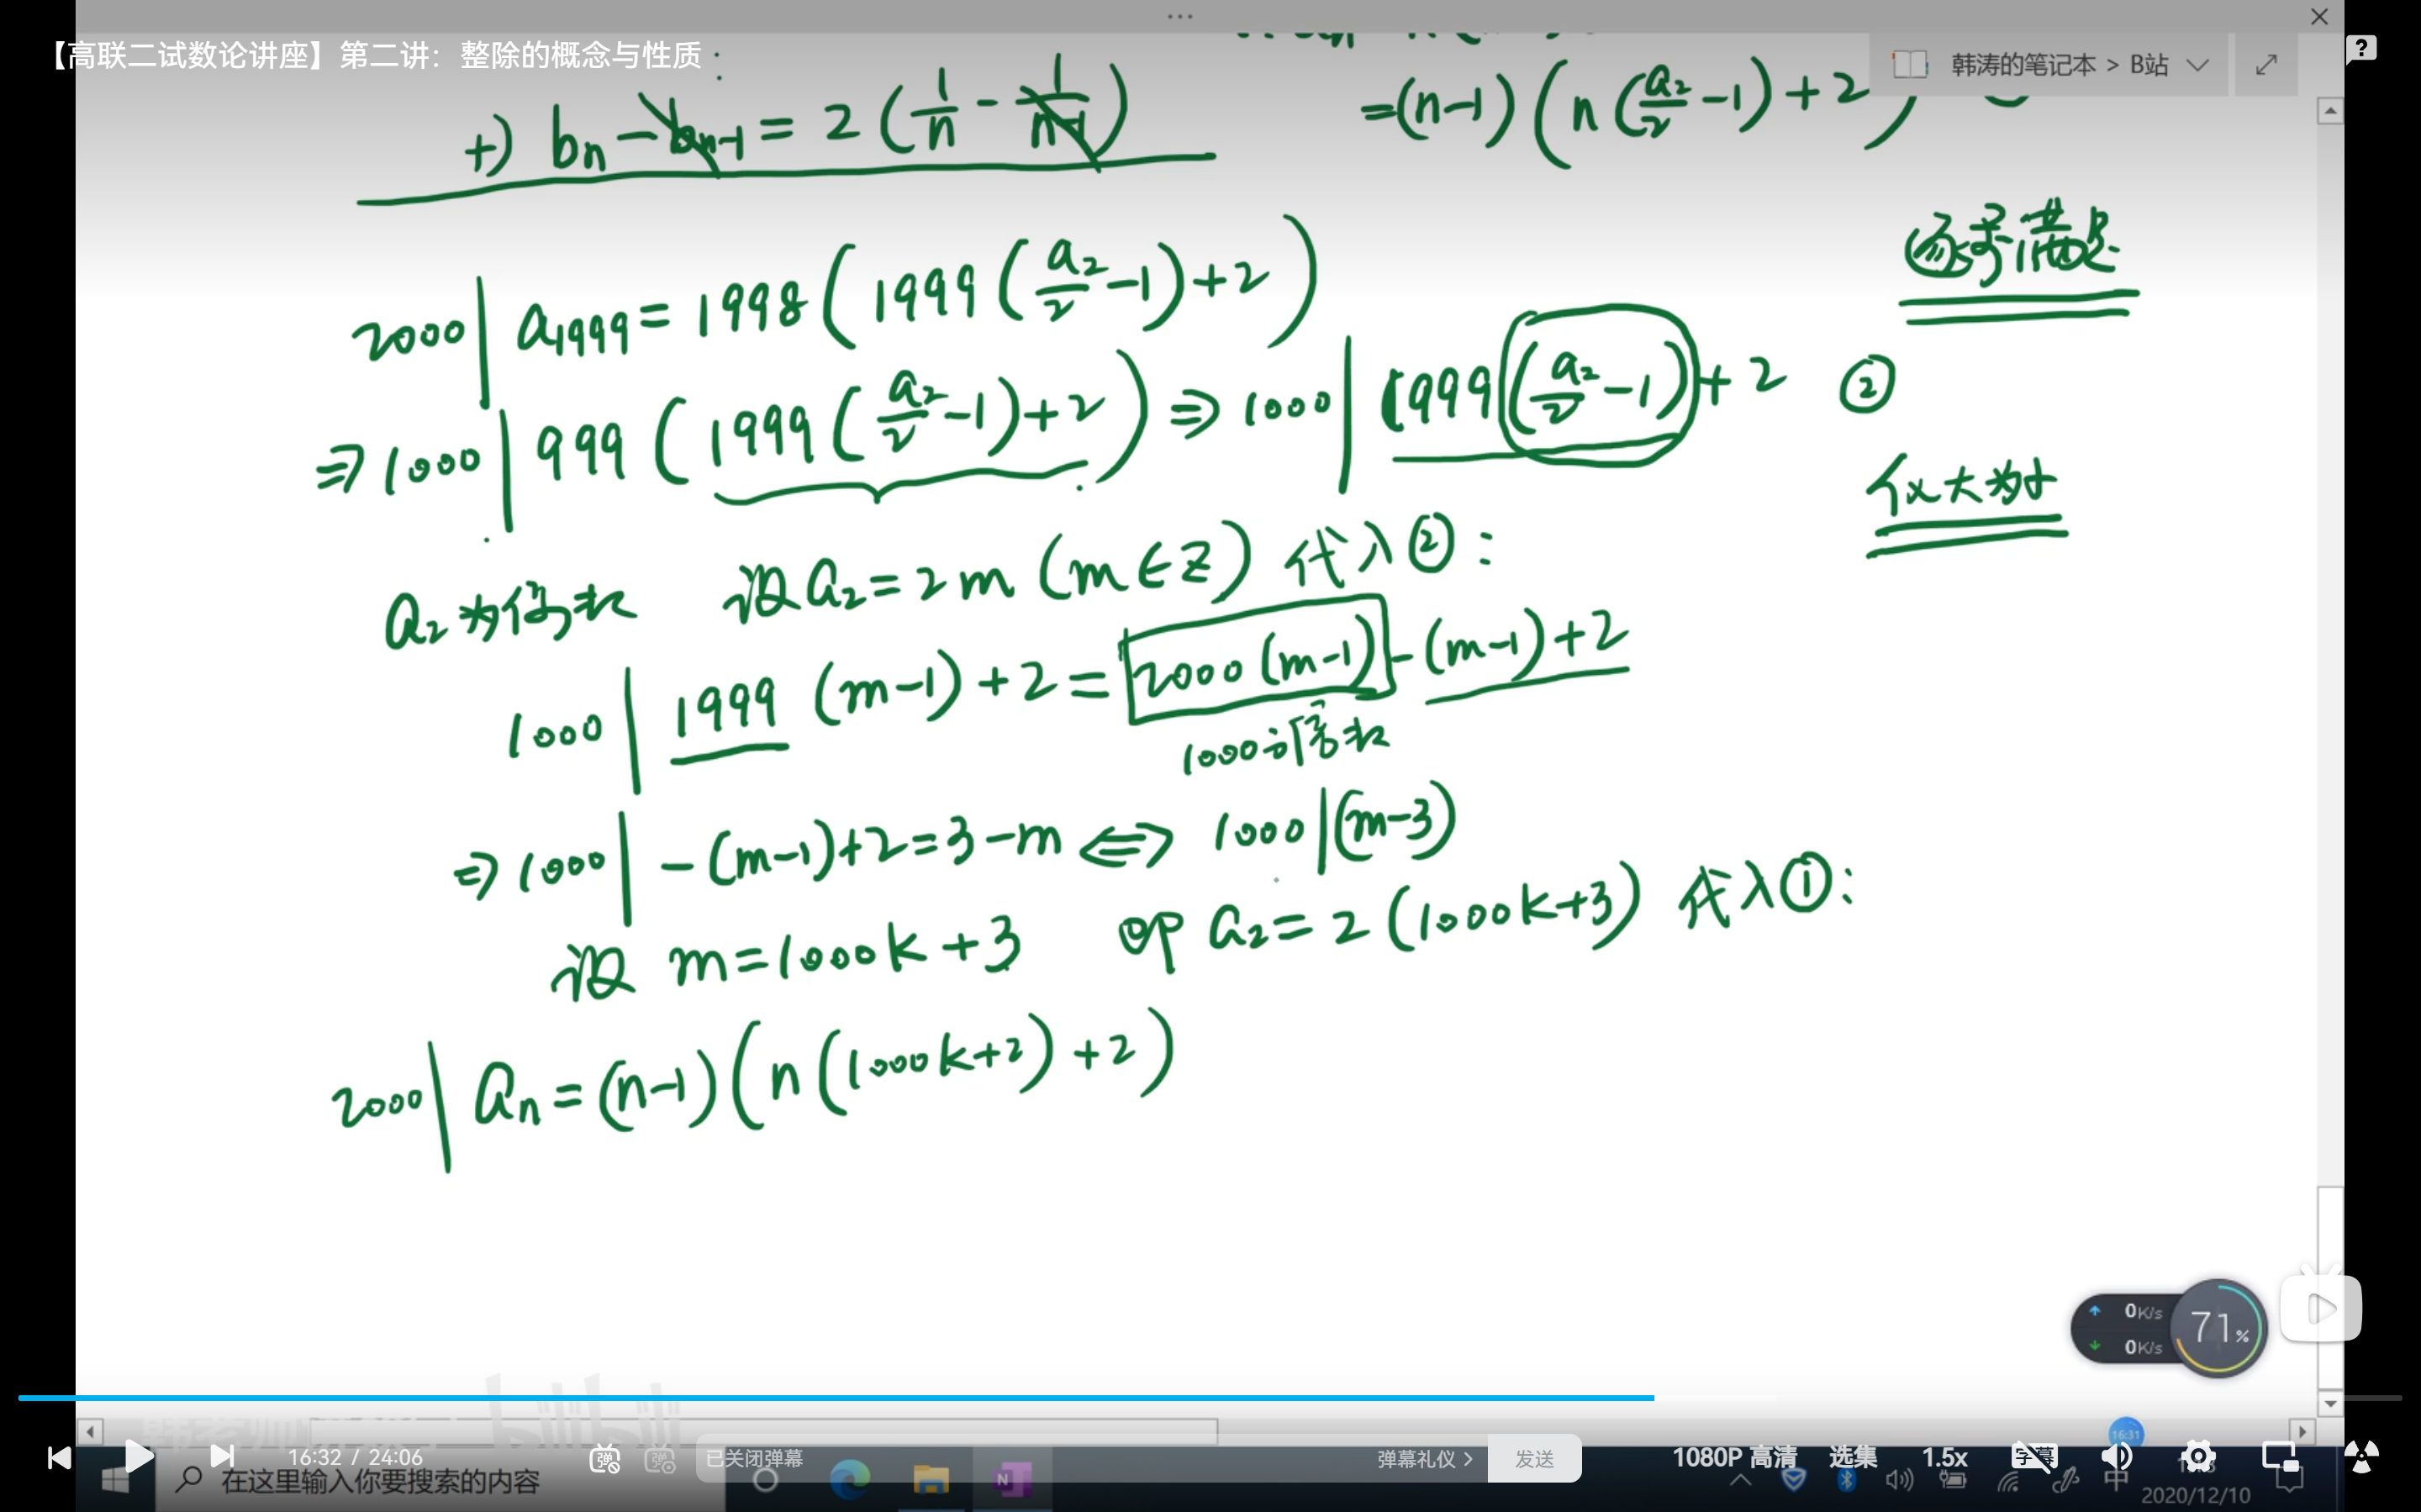 【高联二试数论讲座】第二讲：整除的概念与性质
韩涛的笔记本 > B站
+) bn - bn-1 = 2 ( 1/n - 1/n-1 )
= (n-1) ( n ( a2/2 - 1 ) + 2 )
逐字满足
2000 | a1999 = 1998 ( 1999 ( a2/2 - 1 ) + 2 )
⇒ 1000 | 999 ( 1999 ( a2/2 - 1 ) + 2 ) ⇒ 1000 | 1999 ( a2/2 - 1 ) + 2 ②
化大为小
a2为偶数 设 a2 = 2m (m∈Z) 代入②：
1000 | 1999 (m-1) + 2 = 2000 (m-1) - (m-1) + 2
1000的倍数
⇒ 1000 | -(m-1)+2 = 3-m ⇔ 1000 | (m-3)
设 m = 1000k + 3 即 a2 = 2 (1000k+3) 代入①：
2000 | an = (n-1) ( n (1000k+2) + 2 )
0K/s
0K/s
71%
16:32 / 24:06
已关闭弹幕
弹幕礼仪 >
发送
1080P 高清
选集
1.5x
字幕
16:31
在这里输入你要搜索的内容
中
2020/12/10